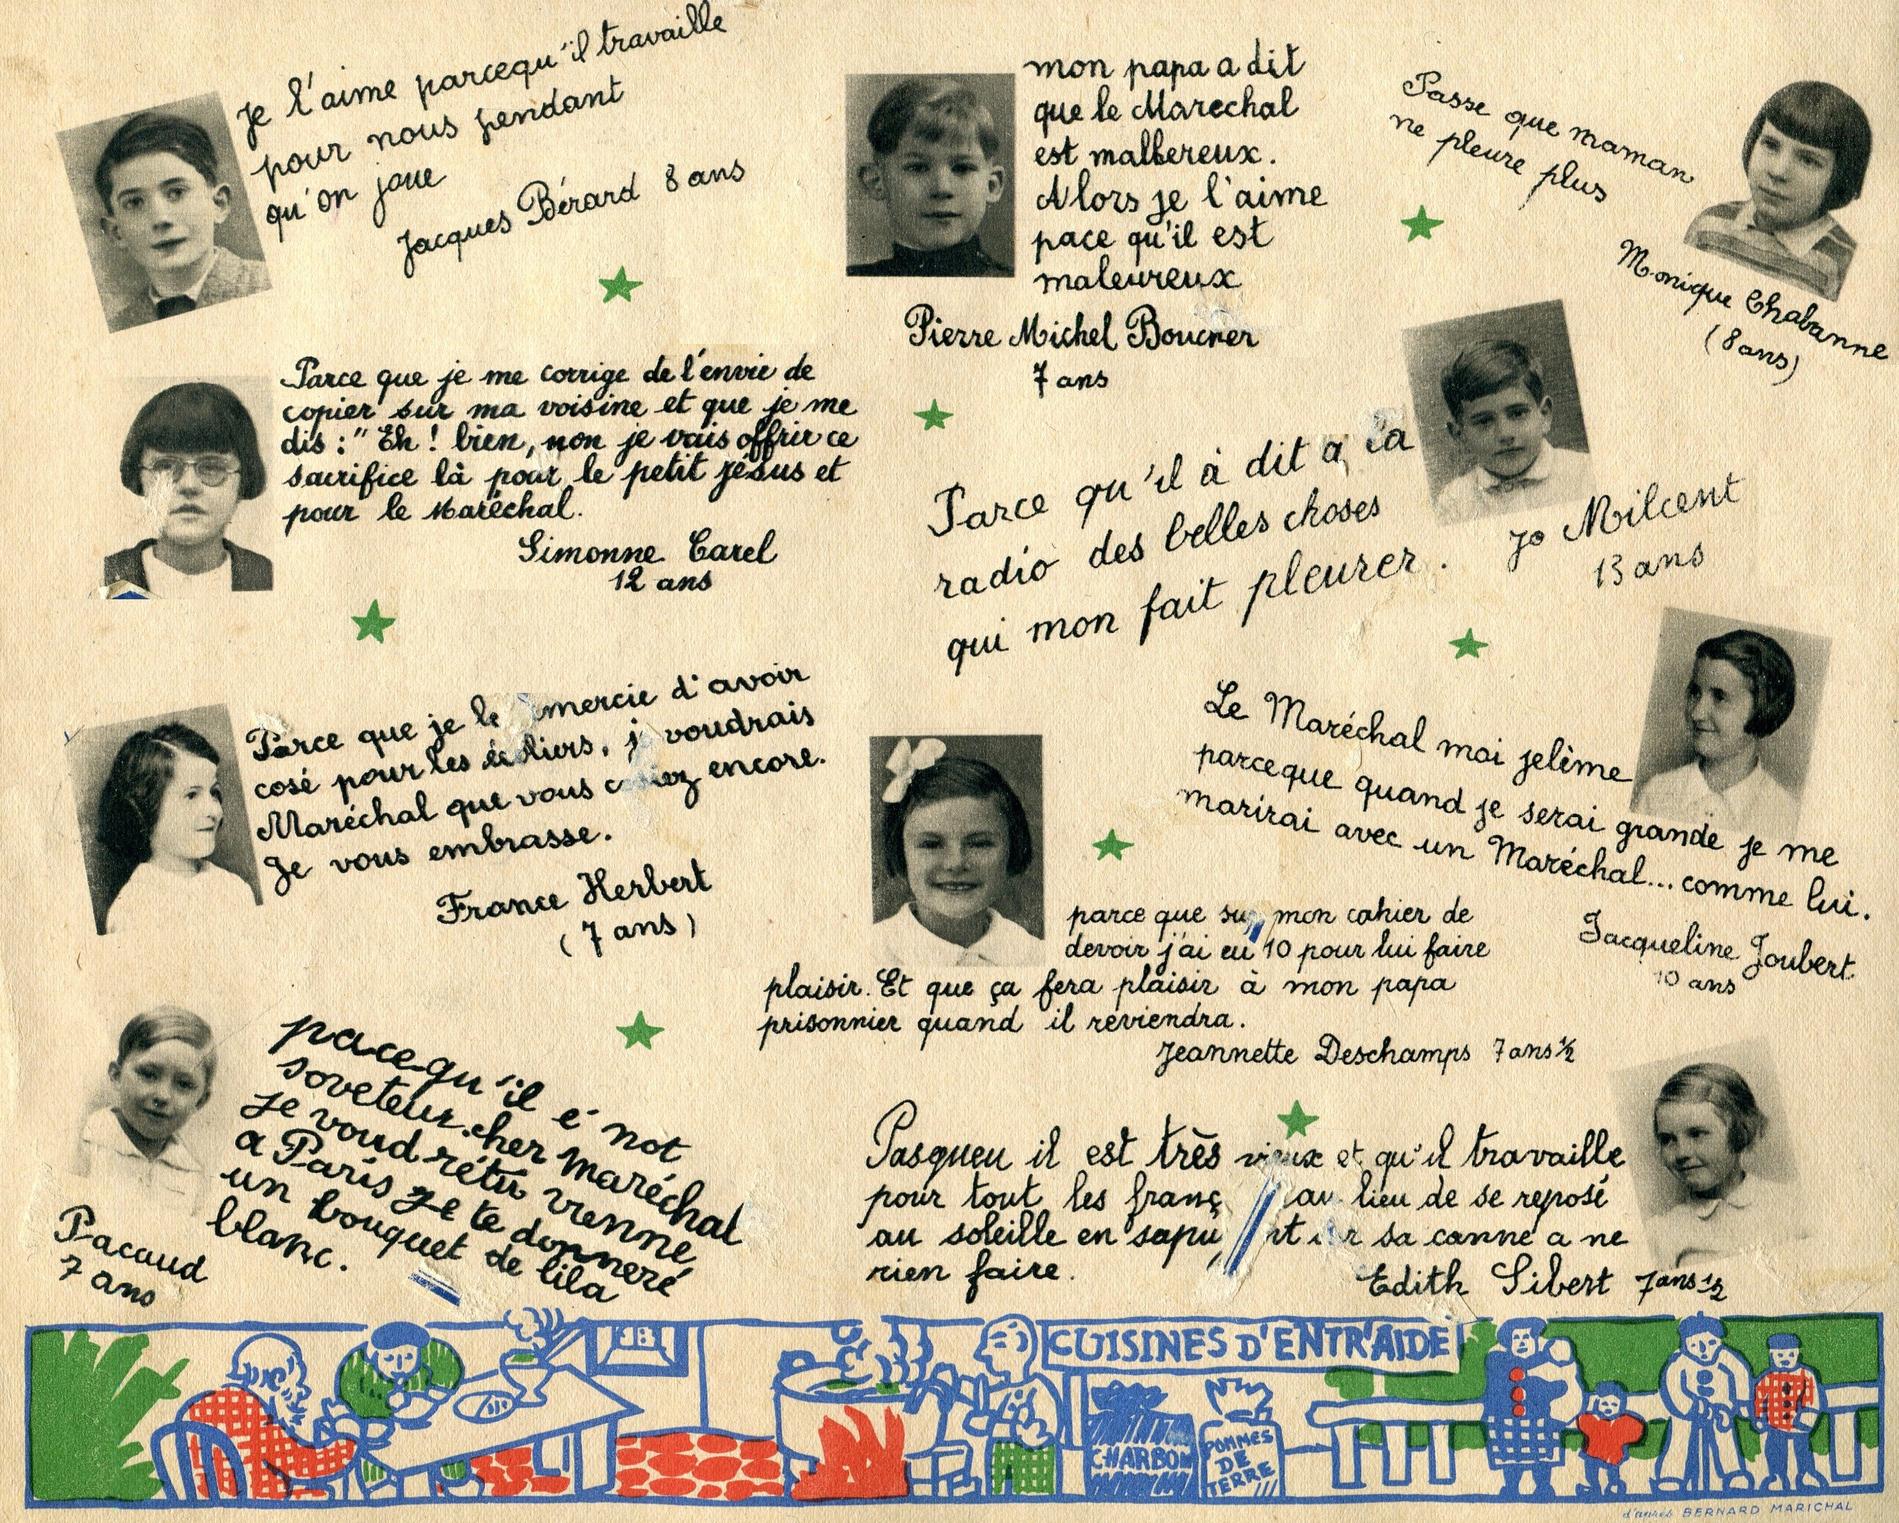 Je l'aime parcequ'il travaille
pour nous pendant
qu'on joue
Jacques Bérard 8 ans
mon papa a dit
que le Marechal
est malbereux.
Alors je l'aime
pace qu'il est
maleureux
Pierre Michel Boucher
7 ans
Passe que maman
ne pleure plus
Monique Chabanne
(8 ans)
Parce que je me corrige de l'envie de
copier sur ma voisine et que je me
dis : "Eh ! bien, non je vais offrir ce
sacrifice là pour le petit jésus et
pour le Maréchal.
Simonne Carel
12 ans
Parce qu'il à dit a la
radio des belles choses
qui mon fait pleurer.
Jo Milcent
13 ans
Parce que je le mercie d'avoir
cosé pour les écoliers, je voudrais
Maréchal que vous encore.
Je vous embrasse.
France Herbert
(7 ans)
Le Maréchal moi jelème
parceque quand je serai grande je me
marirai avec un Maréchal... comme lui.
Jacqueline Joubert
10 ans
parce que sur mon cahier de
devoir j'ai eu 10 pour lui faire
plaisir. Et que ça fera plaisir à mon papa
prisonnier quand il reviendra.
Jeannette Deschamps 7 ans ½
pacequ'il é not
soveteur. cher Maréchal
je voudrétu vienne
a Paris je te donneré
un bouquet de lila
blanc.
Pacaud
7 ans
Pasqueu il est très vieux et qu'il travaille
pour tout les franç au lieu de se reposé
au soleille en sa canne a ne
rien faire.
Edith Sibert 7 ans ½
CUISINES D'ENTR'AIDE
CHARBON
POMMES
DE
TERRE
d'après BERNARD MARICHAL